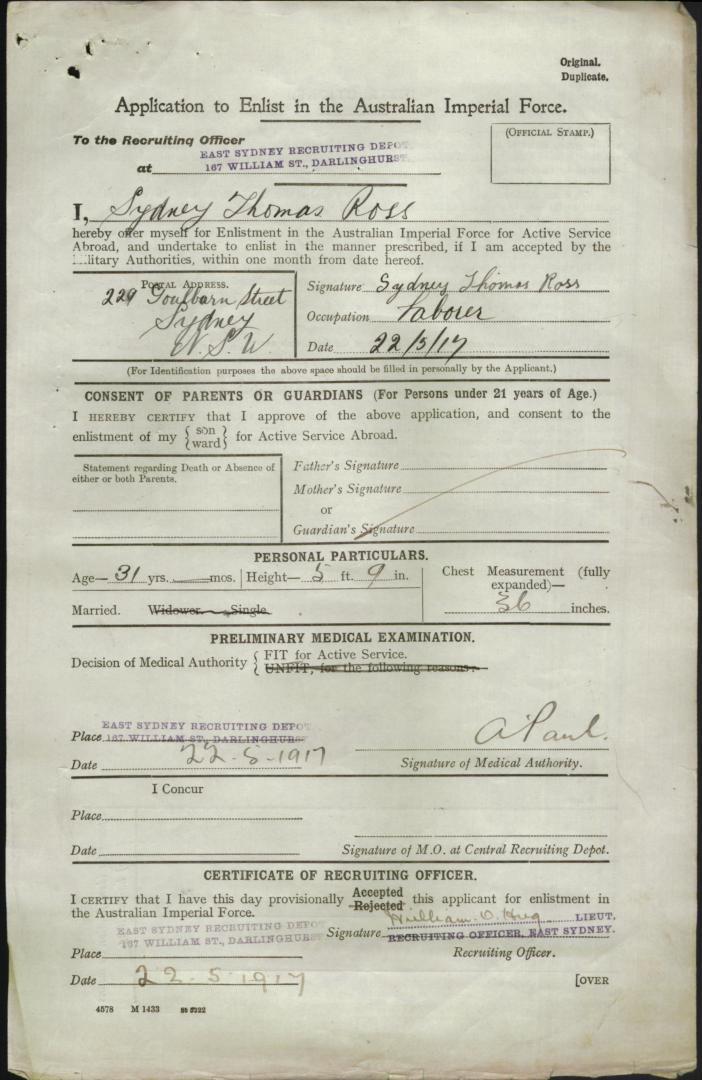 Original.
Duplicate.
Application to Enlist in the Australian Imperial Force.
To the Recruiting Officer
(OFFICIAL STAMP.)
EAST SYDNEY RECRUITING DEPOT
at 167 WILLIAM ST., DARLINGHURST.
I, Sydney Thomas Ross
hereby offer myself for Enlistment in the Australian Imperial Force for Active Service
Abroad, and undertake to enlist in the manner prescribed, if I am accepted by the
Military Authorities, within one month from date hereof.
POSTAL ADDRESS.
229 Goulburn Street
Sydney
N.S.W.
Signature Sydney Thomas Ross
Occupation Laborer
Date 22/5/17
(For Identification purposes the above space should be filled in personally by the Applicant.)
CONSENT OF PARENTS OR GUARDIANS (For Persons under 21 years of Age.)
I HEREBY CERTIFY that I approve of the above application, and consent to the
enlistment of my { son ward } for Active Service Abroad.
Statement regarding Death or Absence of
either or both Parents.
Father's Signature
Mother's Signature
or
Guardian's Signature
PERSONAL PARTICULARS.
Age— 31 yrs. — mos. Height— 5 ft. 9 in.
Chest Measurement (fully
expanded)—
36 inches.
Married. Widower. Single.
PRELIMINARY MEDICAL EXAMINATION.
Decision of Medical Authority { FIT for Active Service.
UNFIT, for the following reasons:—
EAST SYDNEY RECRUITING DEPOT
Place 167 WILLIAM ST., DARLINGHURST
Date 22-5-1917
A Paul.
Signature of Medical Authority.
I Concur
Place
Date
Signature of M.O. at Central Recruiting Depot.
CERTIFICATE OF RECRUITING OFFICER.
I CERTIFY that I have this day provisionally Accepted Rejected this applicant for enlistment in
the Australian Imperial Force.
EAST SYDNEY RECRUITING DEPOT
167 WILLIAM ST., DARLINGHURST
Signature William O. LIEUT.
RECRUITING OFFICER, EAST SYDNEY.
Place
Recruiting Officer.
Date 22.5.1917
[OVER
4578 M 1433